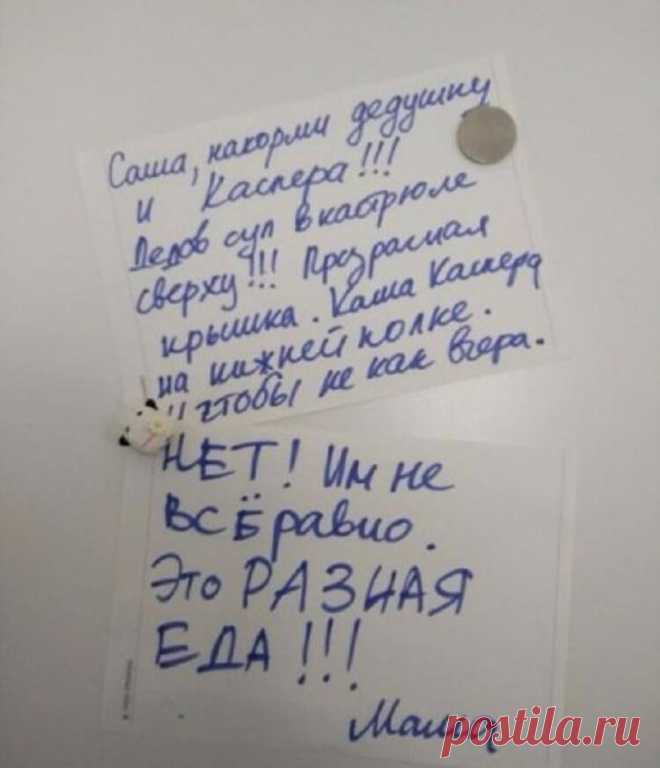 Саша, накорми дедушку
и Каспера!!!
Дедов суп в кастрюле
сверху!!! Прозрачная
крышка. Каша Каспера
на нижней полке.
И чтобы не как вчера.
НЕТ! Им не
ВСЁ равно.
Это РАЗНАЯ
ЕДА!!!
Мама
postila.ru